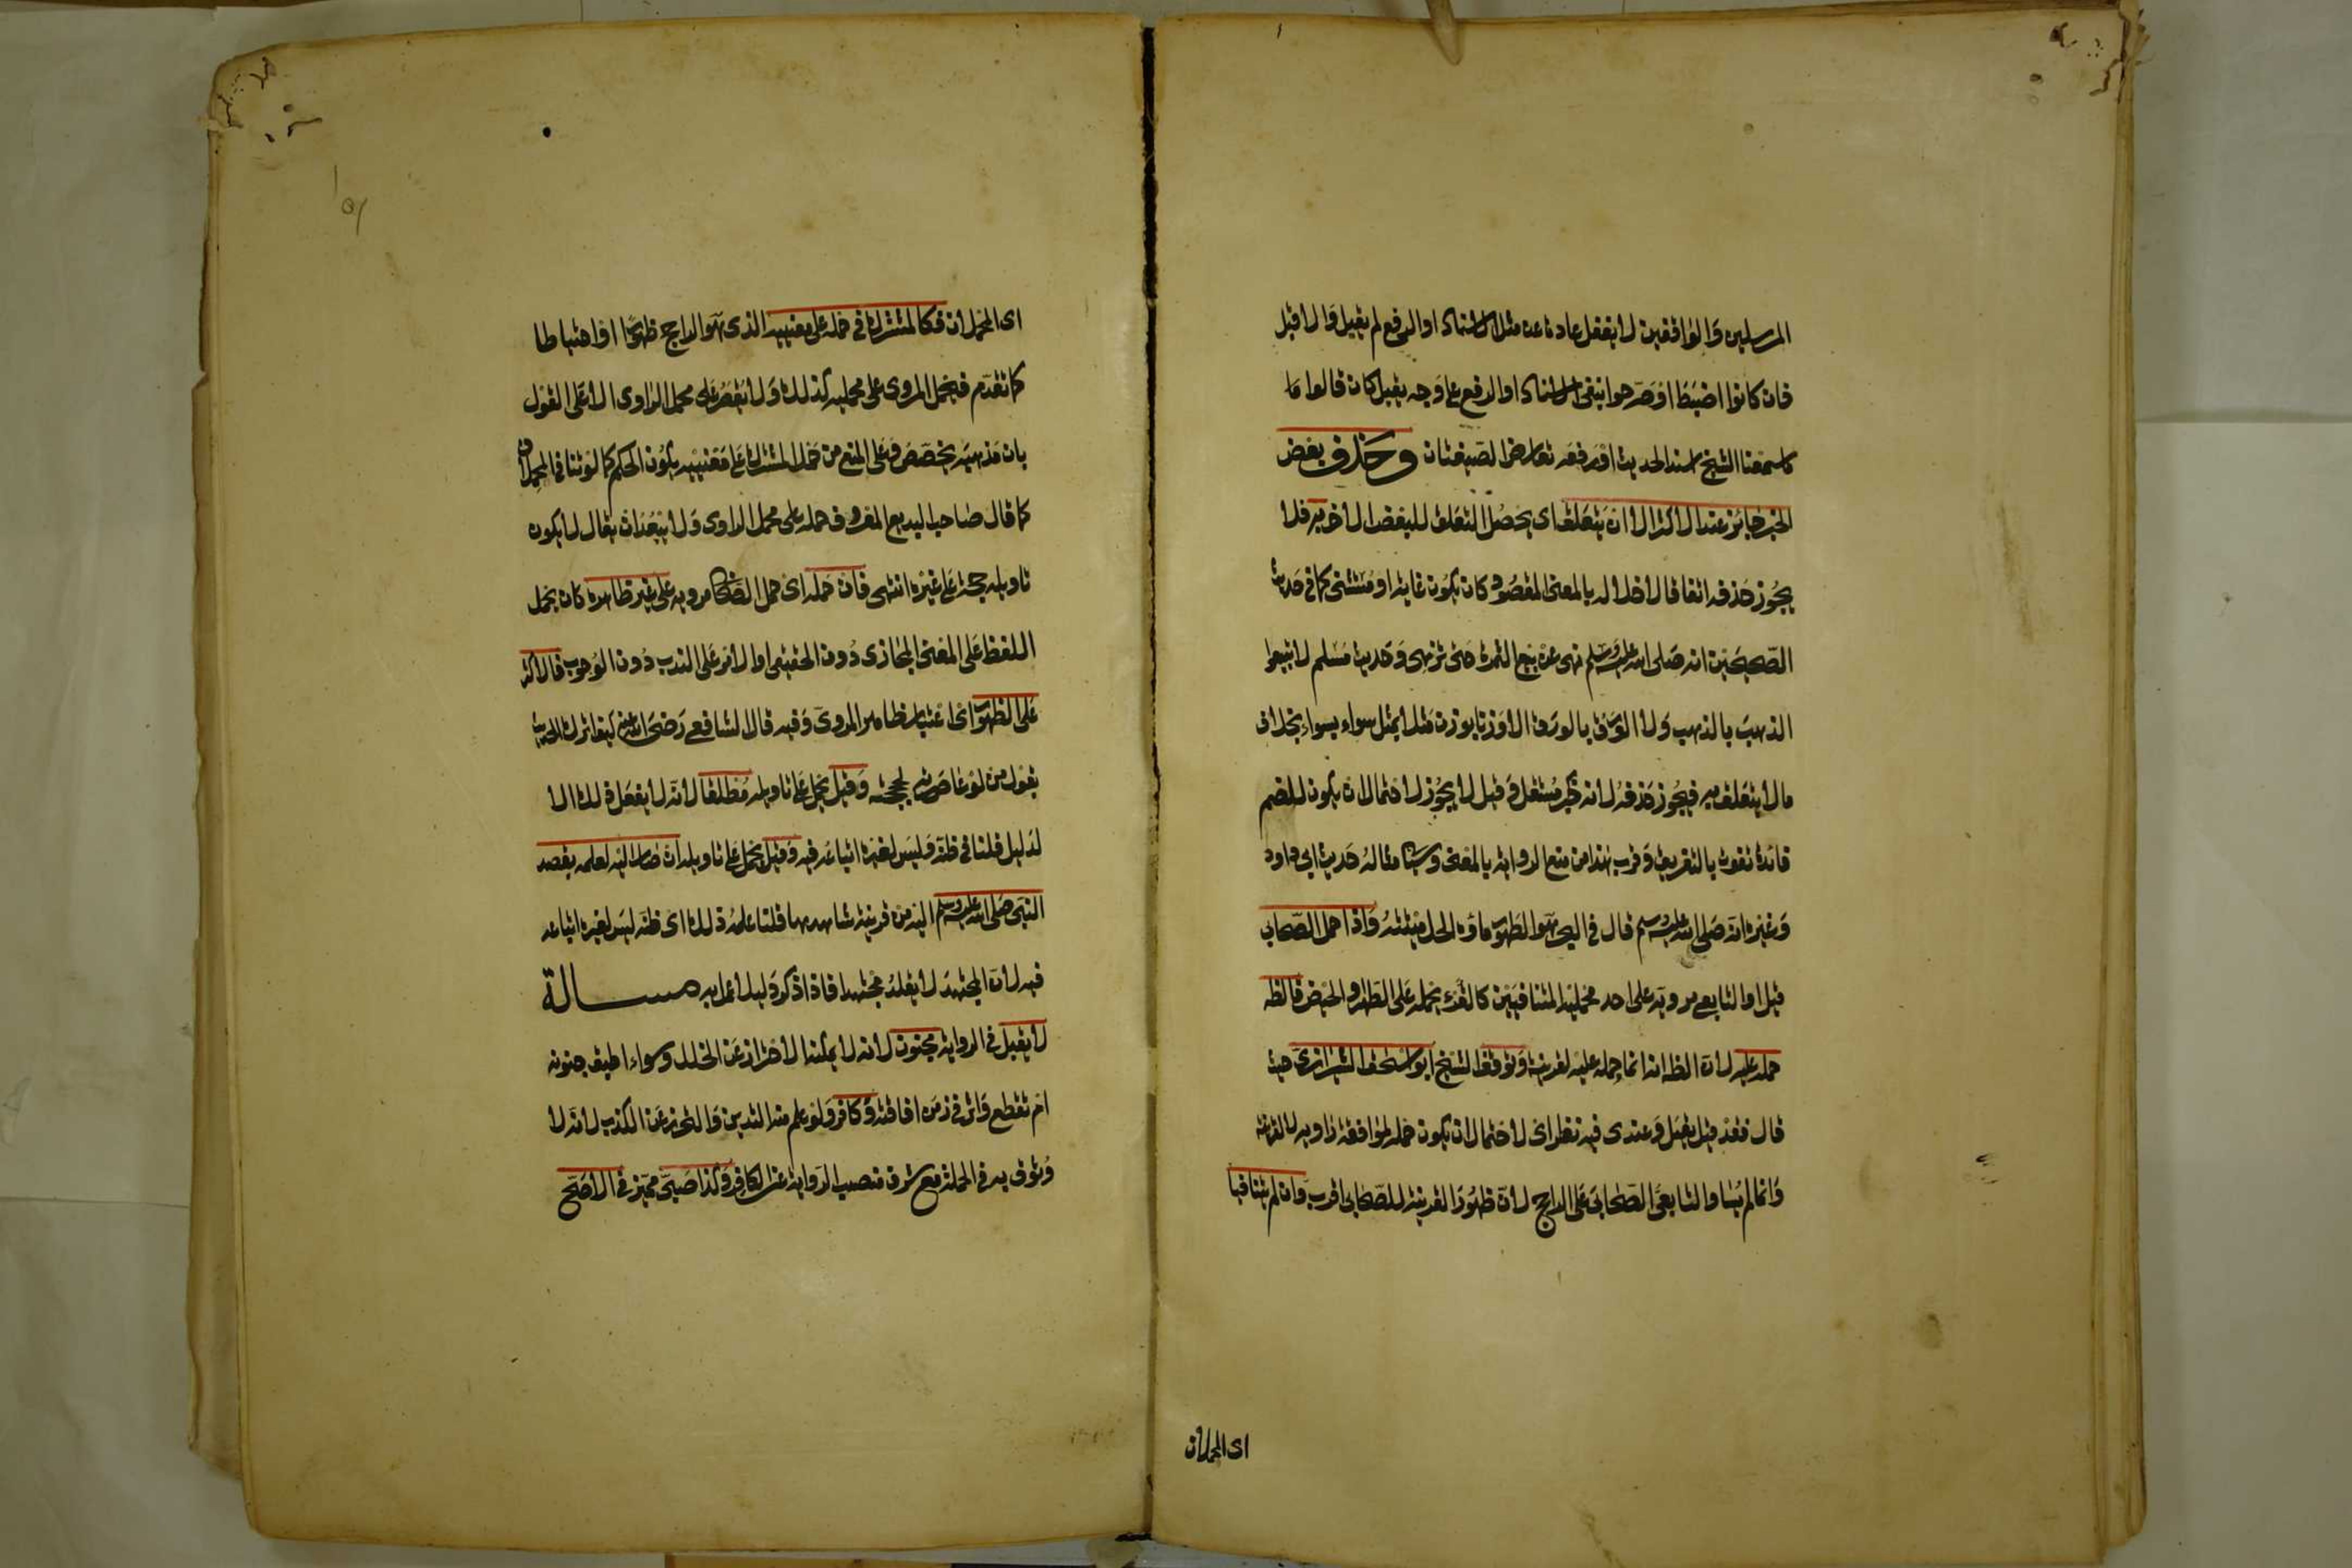 المرسلين والواقفين لا يغفل عادة عن مثل الاسناد او الرفع لم يقبل والا قبل
فان كانوا اضبط او صرحوا بنفى الاسناد او الرفع على وجه يقبل كان قالوا ما
سمعنا الشيخ اسند الحديث او رفعه تعارض الصيغتان وحذف بعض
الخبر جائز عند الاكثر الا ان يتعلق اى يحصل التعلق للبعض الاخر به فلا
يجوز حذفه اتفاقا لاخلاله بالمعنى المقصود كان يكون غاية او مستثنى كما فى حديث
الصحيحين انه صلى الله عليه وسلم نهى عن بيع الثمرة حتى تزهى وحديث مسلم لا تبيعوا
الذهب بالذهب ولا الورق بالورق الا وزنا بوزن مثلا بمثل سواء بسواء بخلاف
ما لا يتعلق به فيجوز حذفه لانه كخبر مستقل وقيل لا يجوز لاحتمال ان يكون للضم
فائدة تفوت بالتفريق وقرب هذا من منع الرواية بالمعنى وسيأتى مثاله حديث ابى داود
وغيره انه صلى الله عليه وسلم قال فى البحر هو الطهور ماؤه الحل ميتته واذا حمل الصحابى
قيل او التابعى مرويه على احد محمليه المتنافيين كالقرء يحمله على الطهر او الحيض فالظ
حمله عليه لان الظ انه انما حمله عليه لقرينة وتوقف الشيخ ابو اسحق الشيرازى حيث
قال فقد قيل يقبل وعندى فيه نظر اى لاحتمال ان يكون حمله لموافقة راويه لا لقرينة
وانما لم يساو التابعى الصحابى على الراجح لان ظهور القرينة للصحابى اقرب وان لم يتنافيا
اى المحملان
اى المحملان فكالمشترك فى حمله على معنييه الذى هو الراجح ظهورا او احتياطا
كما تقدم فيحمل المروى على محمليه كذلك ولا يقصر على محمل الراوى الا على القول
بان مذهبه يخصص وعلى المنع من حمل المشترك على معنييه يكون الحكم كما لو تنافى المحملان
كما قال صاحب البديع المعروف حمله على محمل الراوى ولا يبعد ان يقال لا يكون
تاويله حجة على غيره انتهى فان حمله اى حمل الصحابى مرويه على غير ظاهره كان يحمل
اللفظ على المعنى المجازى دون الحقيقى او الامر على الندب دون الوجوب فالاكثر
على الظهور اى اعتبار ظاهر المروى وفيه قال الشافعى رضى الله عنه كيف اترك الحديث
بقول من لو عاصرته لحججته وقيل يحمل على تاويله مطلقا لانه لا يفعل ذلك الا
لدليل قلنا فى ظنه وليس لغيره اتباعه فيه وقيل يحمل على تاويله ان صار اليه لعلمه بقصد
النبى صلى الله عليه وسلم اليه من قرينة شاهدها قلنا علمه ذلك اى ظنه ليس لغيره اتباعه
فيه لان المجتهد لا يقلد مجتهدا فاذا ذكر دليلا عمل به مسألة
لا يقبل فى الرواية مجنون لانه لا يمكنه الاحتراز عن الخلل وسواء اطبق جنونه
ام تقطع واثر فى زمن افاقته وكافر ولو علم منه التدين والتحرز عن الكذب لانه لا
وثوق به فى الجملة مع شرف منصب الرواية عن الكافر وكذا صبى مميز فى الاصح